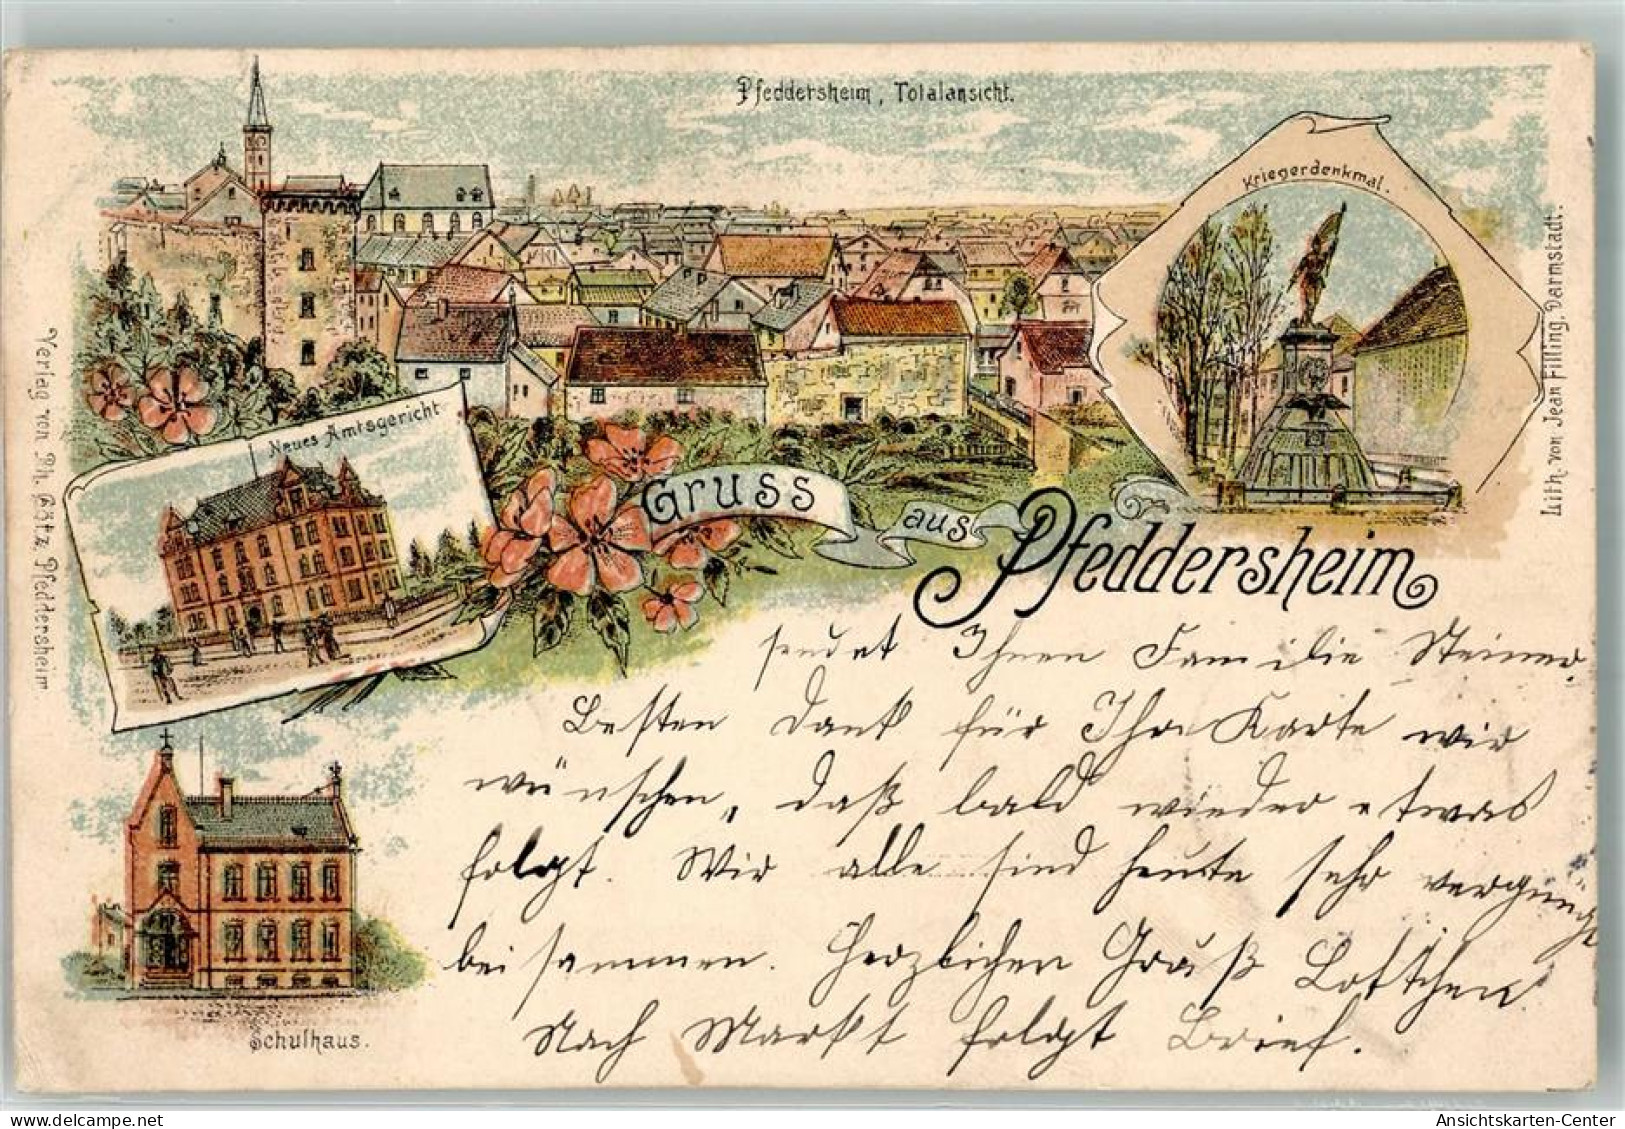 Pfeddersheim, Totalansicht.
Kriegerdenkmal.
Neues Amtsgericht
Gruss
aus
Pfeddersheim
Schulhaus.
Verlag von Ph. Götz, Pfeddersheim.
Lith. von Jean Filling, Darmstadt.
sendet Ihnen Familie Steiner,
Besten Dank für Ihre Karte wir
wünschen, daß bald wieder etwas
folgt. Wir alle sind heute sehr vergnügt
beisammen. Herzlichen Gruß Lottchen
Nach Markt folgt Brief.
Ansichtskarten-Center